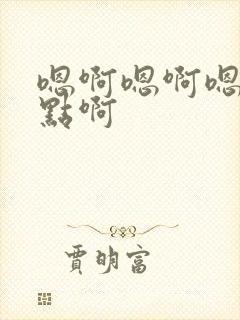 嗯啊嗯啊嗯
點啊
賈明富